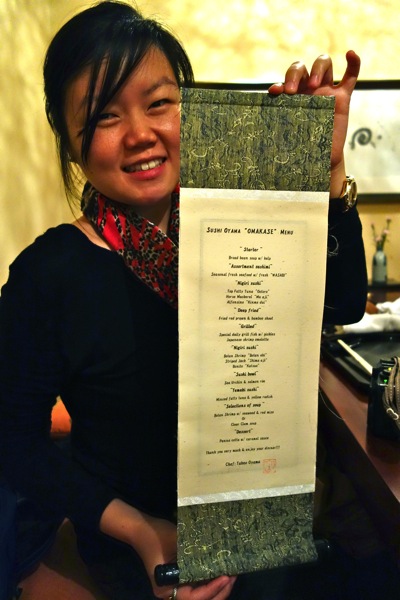 Sushi Oyama "OMAKASE" Menu
"Starter"
Broad bean soup w/ hole
"Assortment sashimi"
Seasonal fresh seafood w/ fresh "WASABI"
"Nigiri sushi"
Top Fatty Tuna "Ootoro"
Horse Mackerel "Ma aji"
Alfonsino "Kinme dai"
"Deep fried"
Fried red prawn & bamboo shoot
"Grilled"
Special daily grill fish w/ pickles
Japanese shrimp omelette
"Nigiri sushi"
Botan Shrimp "Botan ebi"
Striped Jack "Shima aji"
Bonito "Katsuo"
"Sushi bowl"
Sea Urchin & salmon roe
"Temaki sushi"
Minced fatty tuna & yellow radish
"Selections of soup"
Botan Shrimp w/ seaweed & red miso
Or
Clear Clam soup
"Dessert"
Panna cotta w/ caramel sauce
Thank you very much & enjoy your dinner!!!
Chef: Takeo Oyama